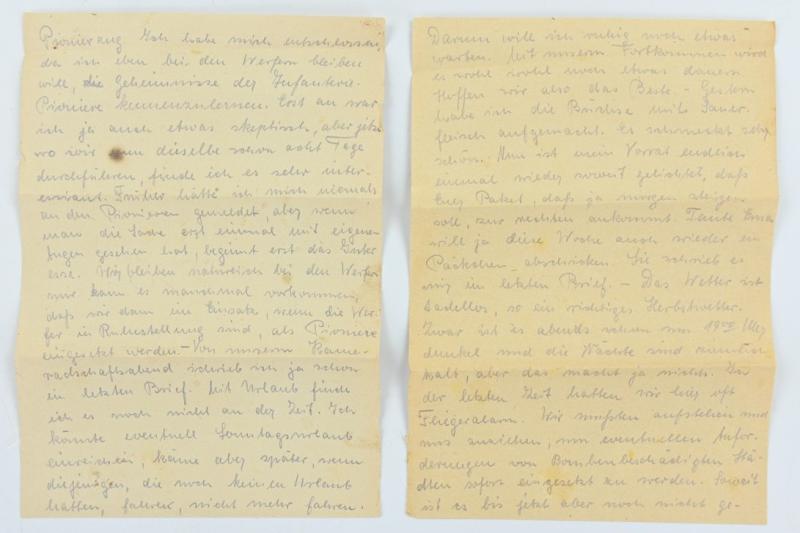 Pionierzug. Ich habe mich entschlossen,
da ich eben bei den Werfern bleiben
will, die Geheimnisse der Infanterie-
Pioniere kennenzulernen. Erst an war
ich ja auch etwas skeptisch, aber jetzt
wo wir nun dieselbe schon acht Tage
durchführen, finde ich es sehr inter-
essant. Früher hätte ich mich niemals
zu den Pionieren gemeldet, aber wenn
man die Sache erst einmal mit eigenen
Augen gesehen hat, beginnt erst das Inter
esse. Wir bleiben natürlich bei den Werfern
nur kann es manchmal vorkommen,
daß wir dann im Einsatz, wenn die Wer-
fer in Ruhestellung sind, als Pioniere
eingesetzt werden. – Von unserem Kame-
radschaftsabend schrieb ich ja schon
im letzten Brief. Mit Urlaub finde
ich es noch nicht an der Zeit. Ich
könnte eventuell Sonntagsurlaub
einreichen, käme aber später, wenn
diejenigen, die noch keinen Urlaub
hatten, fahren, nicht mehr fahren.
Darum will ich ruhig noch etwas
warten. Mit unserm Fortkommen wird
es wohl wohl noch etwas dauern
Hoffen wir also das Beste. – Gestern
habe ich die Büchse mit Sauer-
fleisch aufgemacht. Es schmeckt sehr
schön. Nun ist mein Vorrat endlich
einmal wieder soweit gelichtet, daß
Euer Paket, daß ja morgen steigen
soll, zur rechten ankommt. Tante
will ja diese Woche auch wieder ein
Päckchen abschicken. Sie schrieb es
mir im letzten Brief. – Das Wetter ist
tadellos, so ein richtiges Herbstwetter.
Zwar ist es abends schon um 19⁰⁰ Uhr
dunkel und die Nächte sind ziemlich
kalt, aber das macht ja nichts. In
der letzten Zeit hatten wir hier oft
Fliegeralarm. Wir mußten aufstehen und
uns anziehen, um eventuellen Anfor-
derungen von Bombenbeschädigten Stä-
dten sofort eingesetzt zu werden. Soweit
ist es bis jetzt aber noch nicht ge-